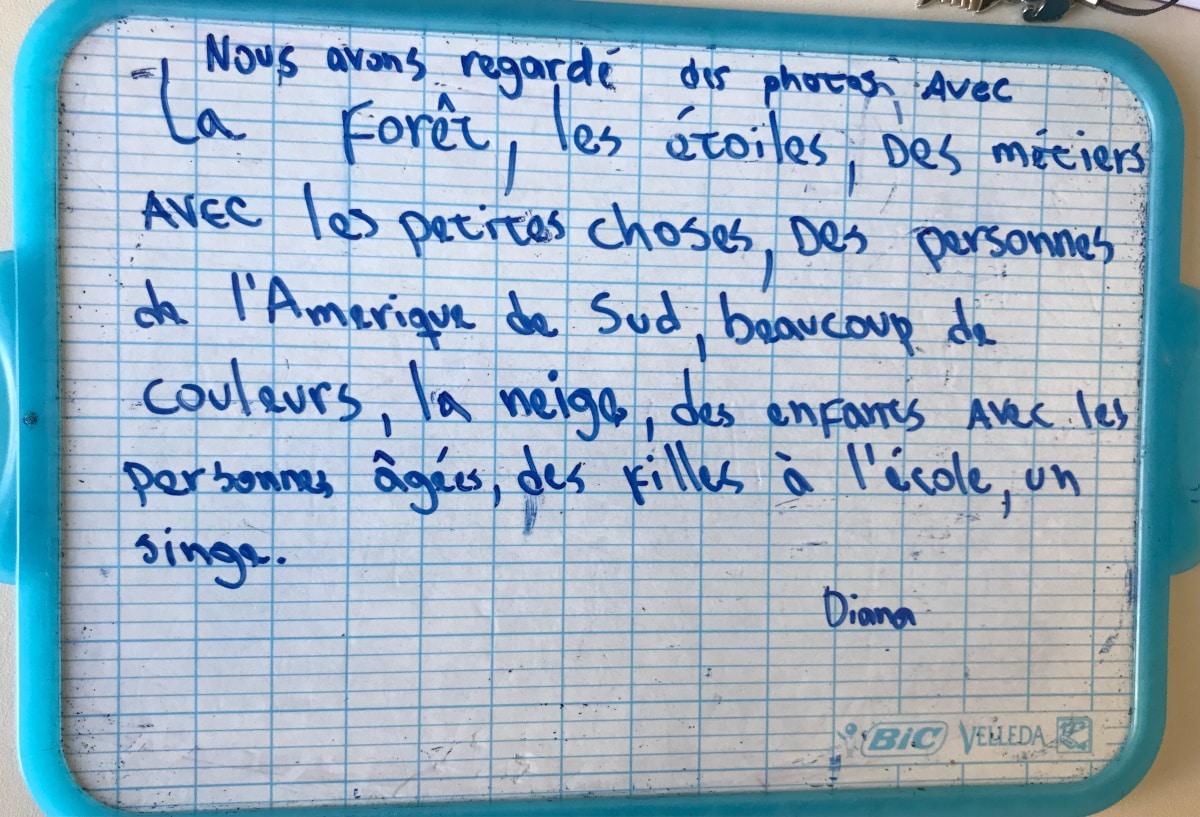 Nous avons regardé des photos, avec
la forêt, les étoiles, des métiers
avec les petites choses, des personnes
de l'Amerique de Sud, beaucoup de
couleurs, la neige, des enfants avec les
personnes âgées, des filles à l'école, un
singe.
Diana
BIC VELLEDA